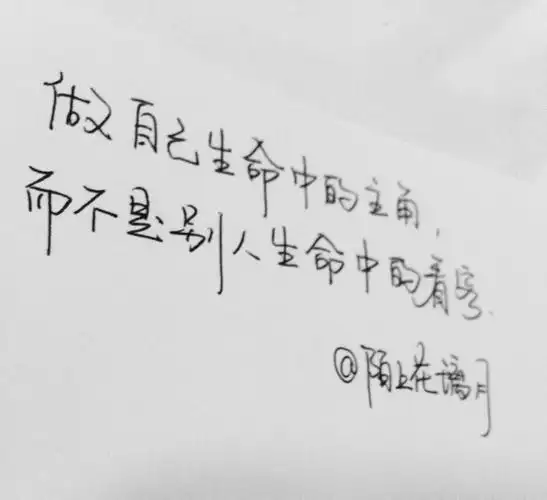 做自己生命中的主角,
而不是别人生命中的看客.
@陌上花漓月